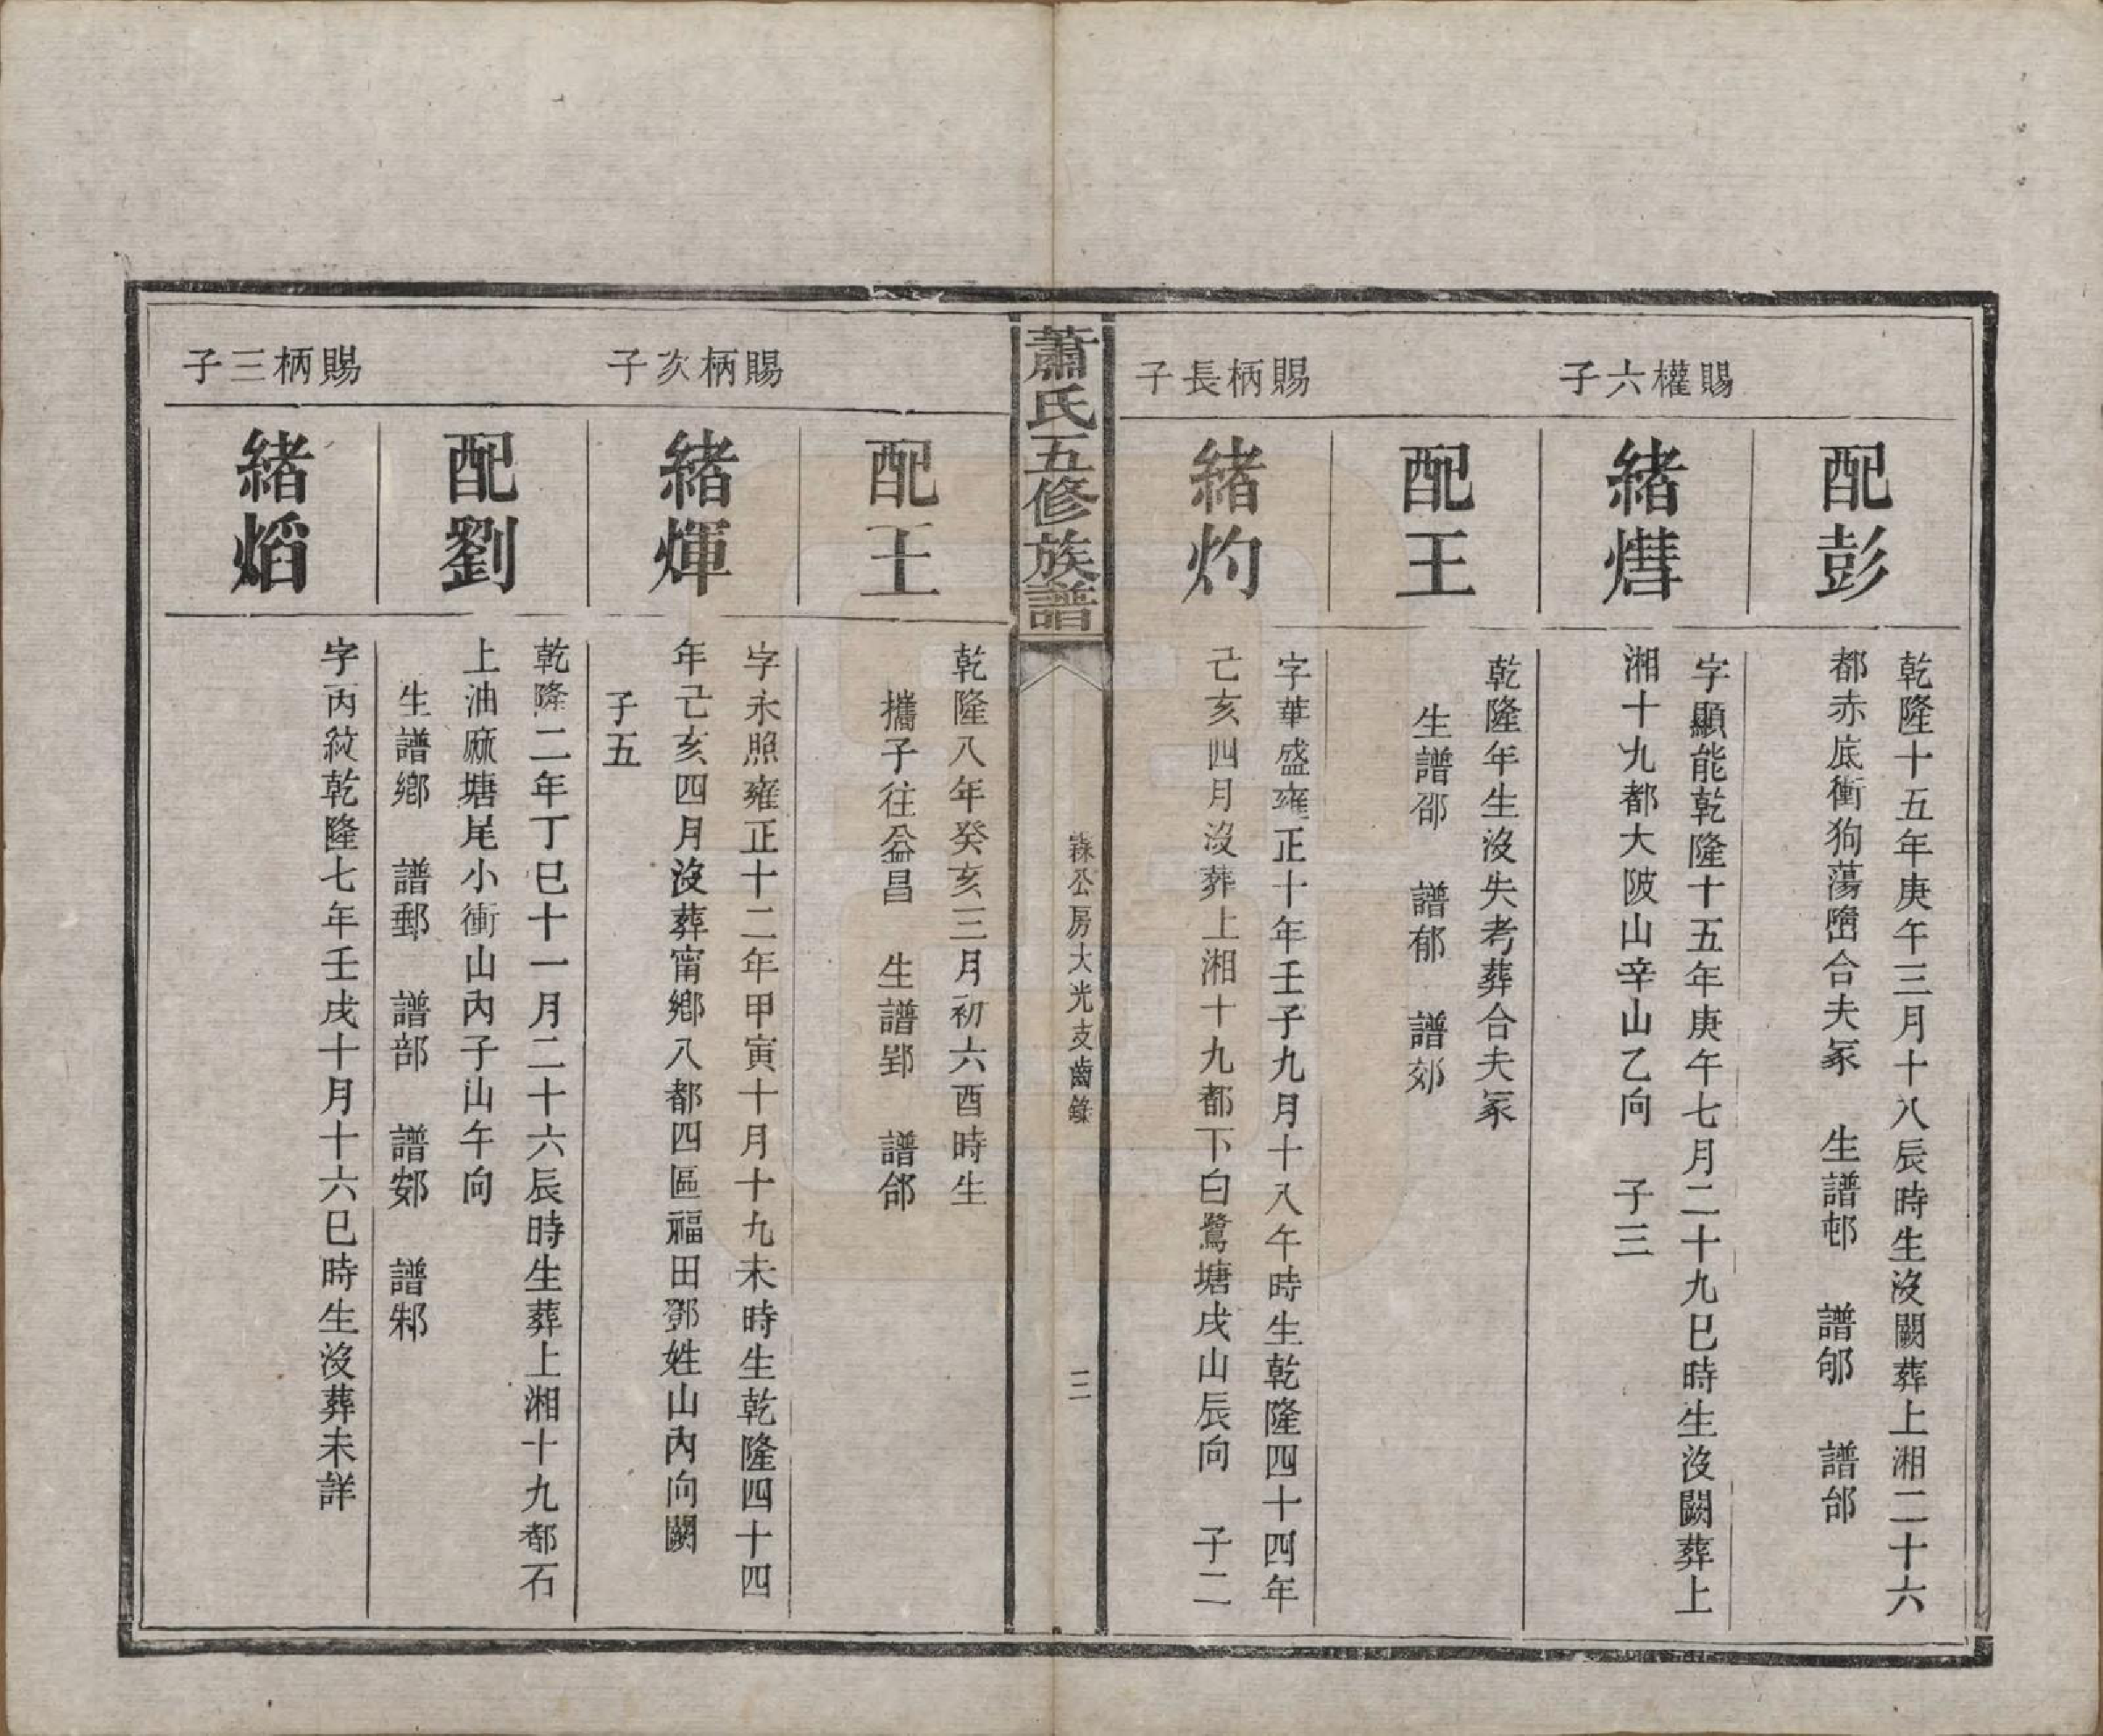 配彭
乾隆十五年庚午三月十八辰時生沒闕葬上湘二十六
都赤底衝狗蕩墈合夫冢　生譜邨　譜郇　譜邰
賜權六子
緒熸
字顯能乾隆十五年庚午七月二十九巳時生沒闕葬上
湘十九都大陂山辛山乙向　子三
配王
乾隆年生沒失考葬合夫冢
生譜邵　譜郁　譜郊
賜柄長子
緒灼
字華盛雍正十年壬子九月十八午時生乾隆四十四年
己亥四月沒葬上湘十九都下白鷺塘戌山辰向　子二
蕭氏五修族譜
公房大光支齒錄
三
配王
乾隆八年癸亥三月初六酉時生
攜子往益昌　生譜郢　譜郃
賜柄次子
緒煇
字永照雍正十二年甲寅十月十九未時生乾隆四十四
年己亥四月沒葬甯鄉八都四區福田鄧姓山內向闕
子五
配劉
乾隆二年丁巳十一月二十六辰時生葬上湘十九都石
上油麻塘尾小衝山內子山午向
生譜鄉　譜郵　譜部　譜郯　譜邾
賜柄三子
緒熖
字丙紋乾隆七年壬戌十月十六巳時生沒葬未詳